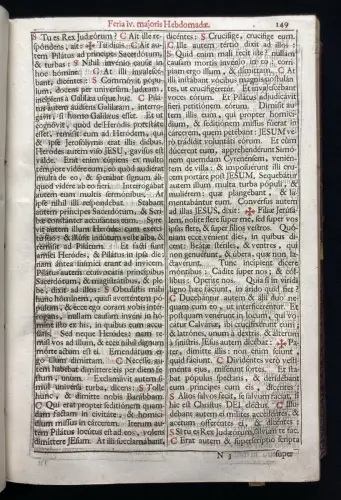 Feria iv. majoris Hebdomadæ. 149
S Tu es Rex Judæorum? C Ait ille re-
spondens, ait: ✠ Tu dicis. C Ait au-
tem Pilátus ad príncipes Sacerdótum,
& turbas: S Nihil invénio causæ in
hoc hómine. C At illi invalescé-
bant, dicéntes: S Cómmovit pópu-
lum, docens per univérsam Judæam,
incípiens à Galilæa usque huc. C Pi-
látus autem áudiens Galilæam, interro-
gávit, si homo Galilæus esset. Et ut
cognóvit, quod de Heródis potestáte
esset, remísit eum ad Heródem, qui
& ipse Jerosólymis erat illis diébus.
Heródes autem viso JESU, gavísus est
valde. Erat enim cúpiens ex multo
témpore vidére eum, eo quòd audíerat
multa de eo, & sperábat signum áli-
quod vidére ab eo fíeri. Interrogábat
autem eum multis sermónibus. At
ipse nihil illi respondébat. Stabant
autem príncipes Sacerdótum, & Scri-
bæ constánter accusántes eum. Sprevit
autem illum Heródes cum exércitu
suo: & illúsit indútum veste alba, &
remísit ad Pilátum. Et facti sunt
amíci Heródes, & Pilátus in ipsa die:
nam ántea inimíci erant ad ínvicem.
Pilátus autem convocátis princípibus
Sacerdótum, & magistrátibus, & ple-
be, dixit ad illos: S Obtulístis mihi
hunc hóminem, quasi averténtem pó-
pulum, & ecce ego coram vobis intér-
rogans, nullam causam invéni in hó-
mine isto ex his, in quibus eum accu-
sátis. Sed neque Heródes: nam re-
mísi vos ad illum, & ecce nihil dignum
morte actum est ei. Emendátum er-
go illum dimíttam. C Necésse au-
tem habébat dimíttere eis per diem fe-
stum, unum. Exclamávit autem si-
mul univérsa turba, dicens: S Tolle
hunc, & dimítte nobis Barábbam.
C Qui erat propter seditiónem quam-
dam factam in civitáte, & homicí-
dium missus in cárcerem. Iterum au-
tem Pilátus locútus est ad eos, volens
dimíttere JESum. At illi succlamábant,
dicéntes: S Crucifíge, crucifíge eum.
C Ille autem tértio dixit ad illos:
S Quid enim mali fecit iste? nullam
causam mortis invénio in eo: corrí-
piam ergo illum, & dimíttam. C At
illi instábant vócibus magnis postulán-
tes, ut crucifigerétur. Et invalescébant
voces eórum. Et Pilátus adjudicávit
fíeri petitiónem eórum. Dimísit au-
tem illis eum, qui propter homicí-
dium, & seditiónem missus fúerat in
cárcerem, quem petébant: JESUM ve-
rò trádidit voluntáti eórum. Et cùm
dúcerent eum, apprehendérunt Simó-
nem quemdam Cyrenénsem, venién-
tem de villa: & imposuérunt illi cru-
cem portáre post JESUM. Sequebátur
autem illum multa turba pópuli, &
mulíerum: quæ plangébant, & la-
mentabántur eum. Convérsus autem
ad illas JESUS, dixit: ✠ Fíliæ Jerúsa-
lem, nolíte flere super me, sed super vos
ipsas flete, & super fílios vestros. Quó-
niam ecce vénient dies, in quibus di-
cent: Beátæ stériles, & ventres, qui
non genuérunt, & úbera, quæ non la-
ctavérunt. Tunc incípient dícere
móntibus: Cádite super nos; & cól-
libus: Operíte nos. Quia si in víridi
ligno hæc fáciunt, in árido quid fiet?
C Ducebántur autem & álii duo ne-
quam cum eo, ut interficeréntur. Et
postquam venérunt in locum, qui vo-
cátur Calváriæ, ibi crucifixérunt eum;
& latrónes, unum à dextris, & álterum
à sinístris. Jesus autem dicébat: ✠ Pa-
ter, dimítte illis: non enim sciunt,
quid fáciunt. C Dividéntes verò vesti-
ménta ejus, misérunt sortes. Et sta-
bat pópulus spectans, & deridébant
eum príncipes cum eis, dicéntes:
S Alios salvos fecit, se salvum fáciat, si
hic est Christus DEI, eléctus. C Illu-
débant autem ei mílites accedéntes, &
acétum offeréntes ei, & dicéntes:
S Si tu es Rex Judæórum, salvum te fac.
C Erat autem & superscríptio scripta
N 3 super